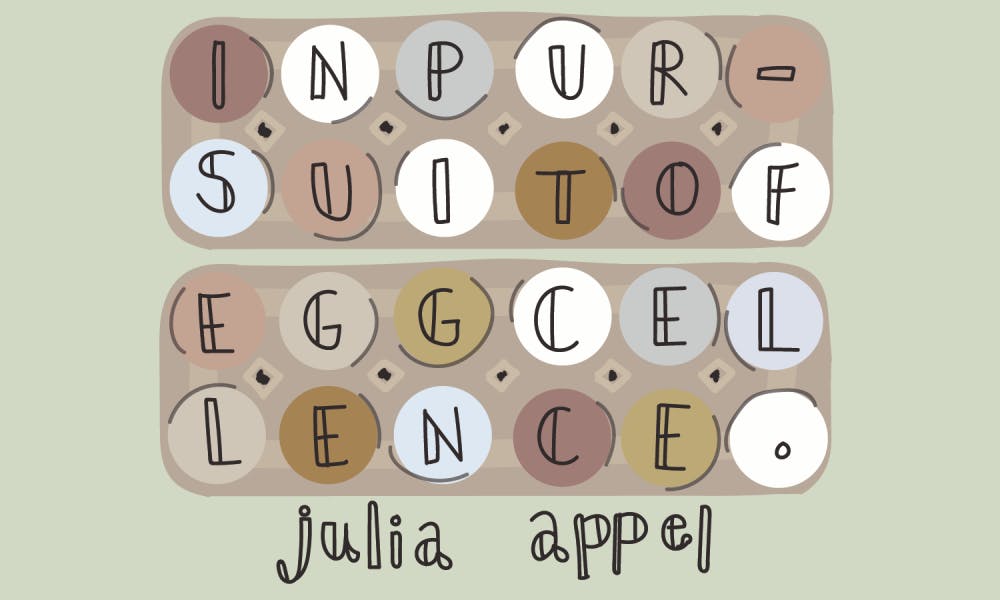 INPUR-
SUITOF
EGGCEL
LENCE.
julia appel